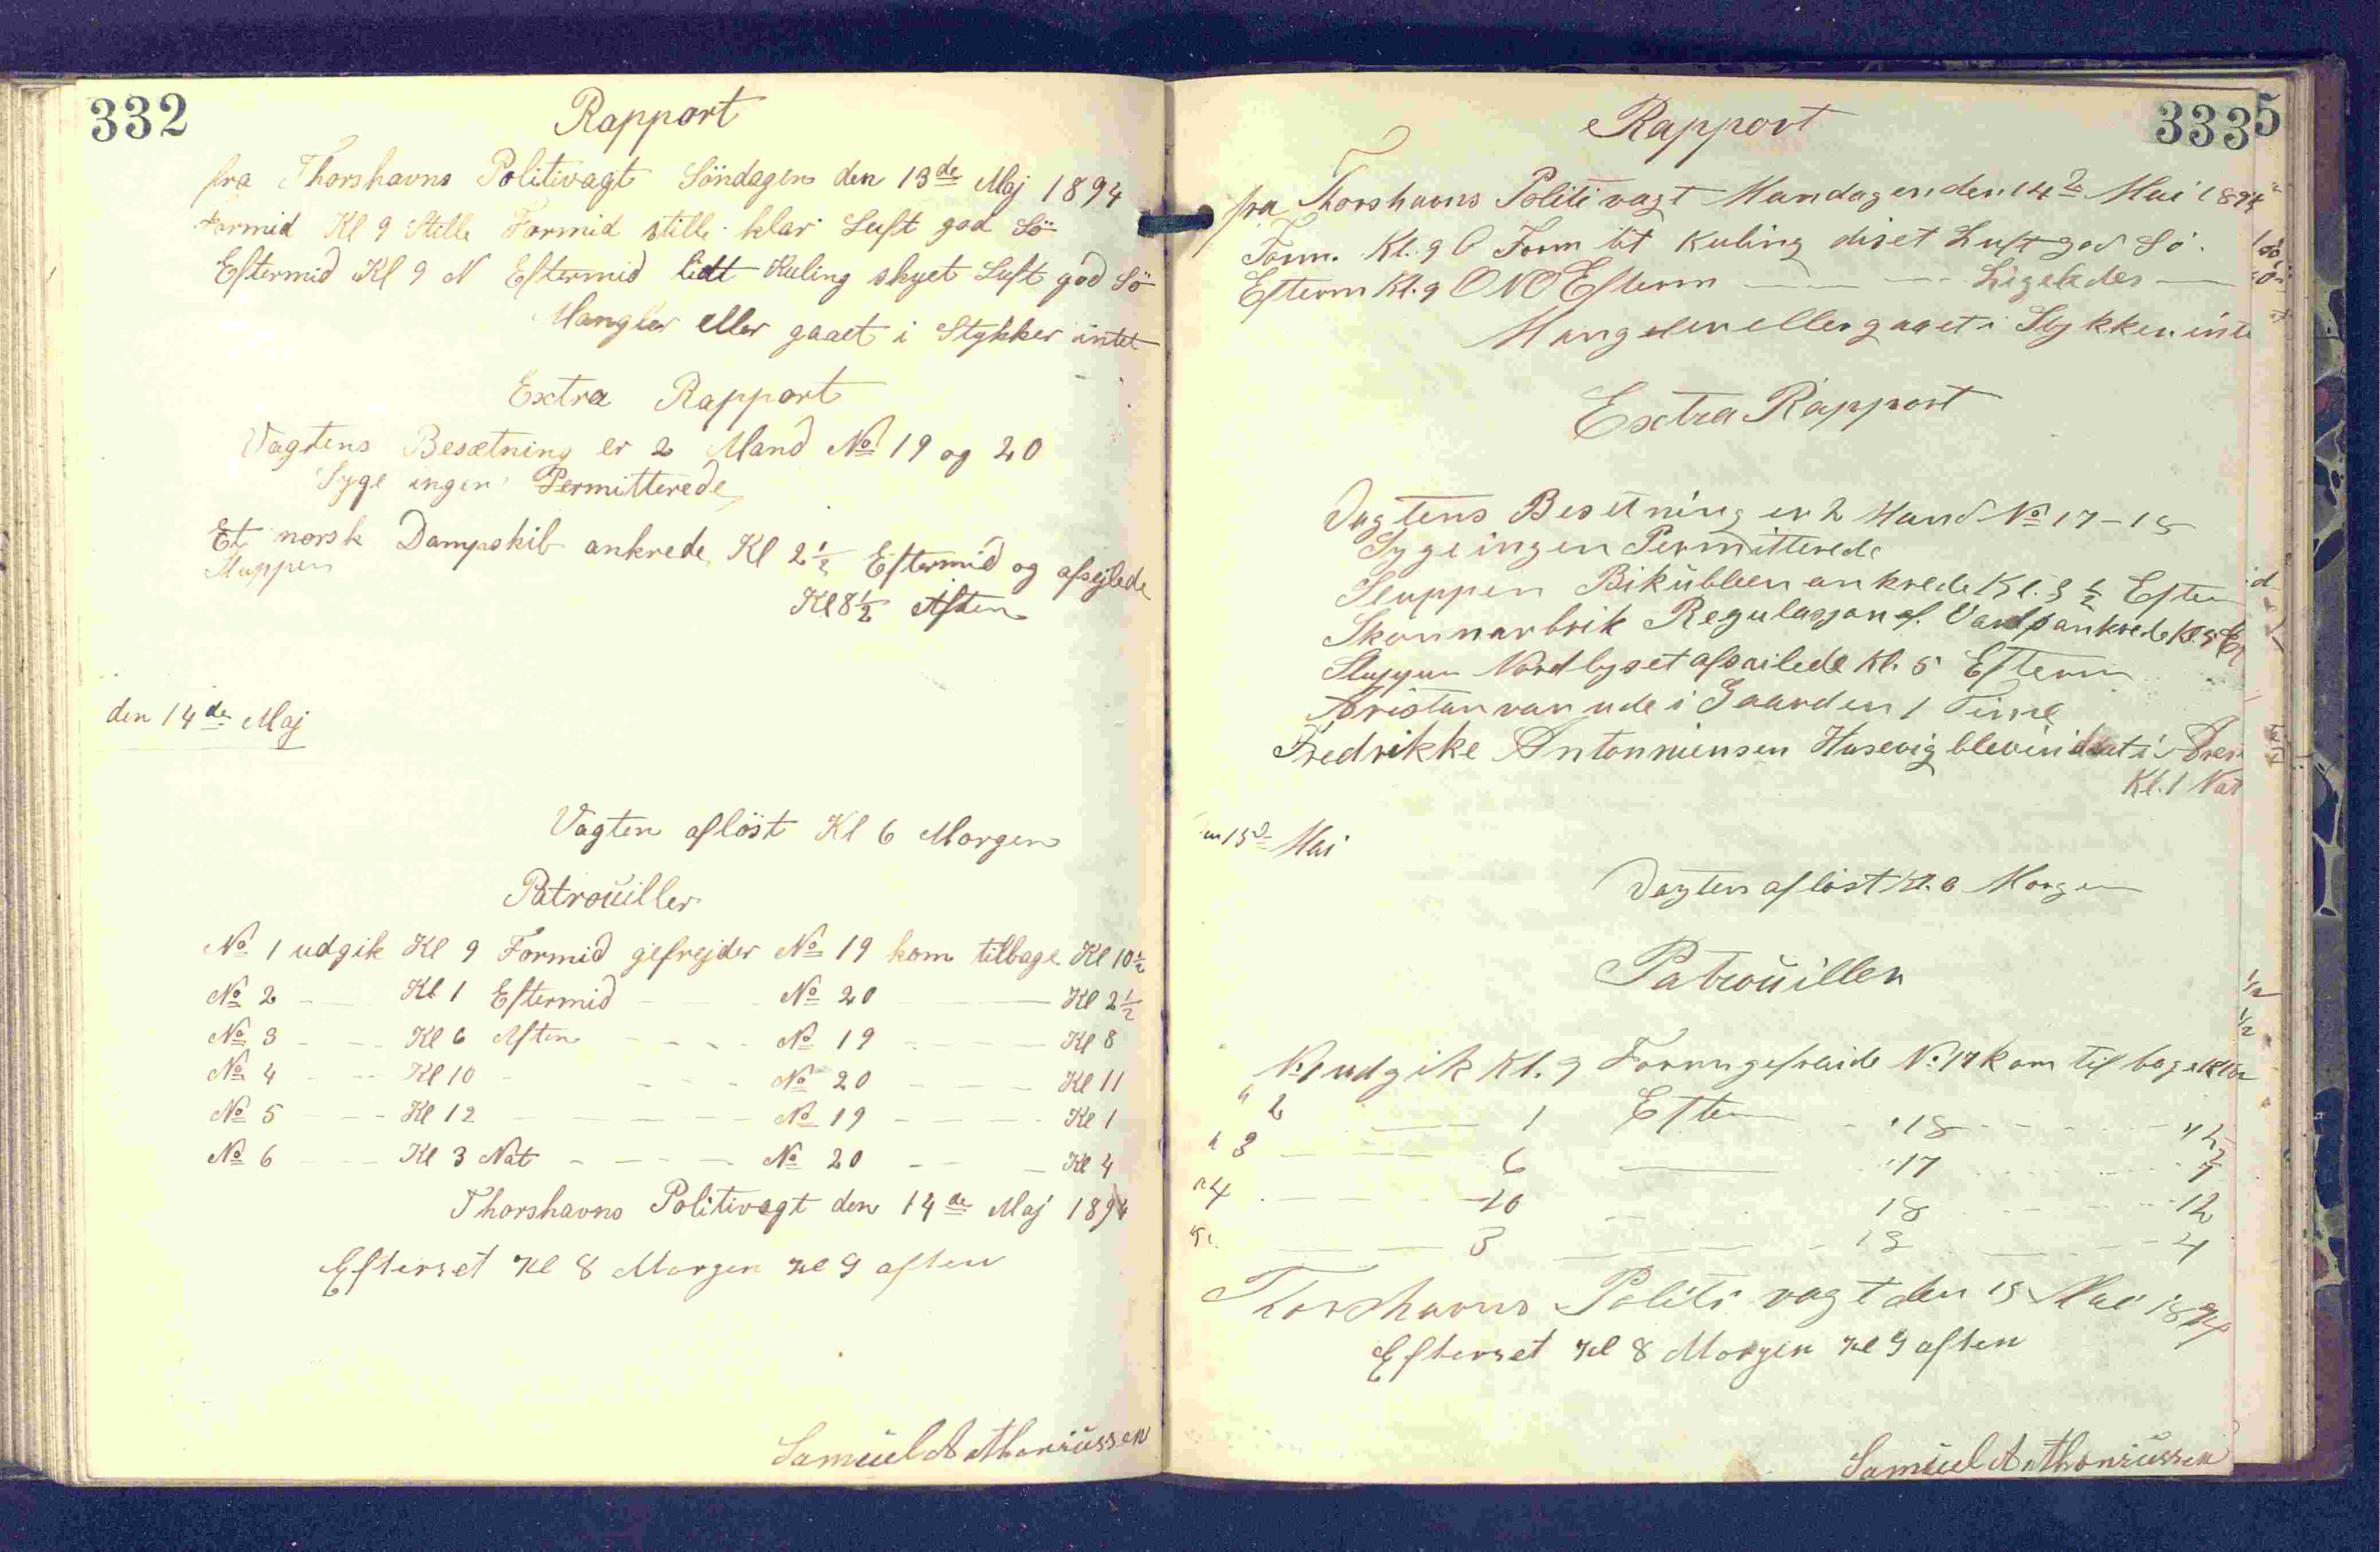 332
Rapport
fra Thorshavns Politivagt Söndagen den 13de Maj 1894
Formid Kl 9 Stille Formid stille klar Luft god Sö
Eftermid Kl 9 N Eftermid lidt Kuling skyet Luft god Sö
Mangler eller gaaet i Stykker intet
Extra Rapport
Vagtens Besætning er 2 Mand No 19 og 20
Syge ingen Permitterede
Et norsk Dampskib ankrede Kl 2½ Eftermid og afsejlede
Sluppen
Kl 8½ Aften
den 14de Maj
Vagten aflöst Kl 6 Morgen
Patrouiller
No 1 udgik Kl 9 Formid gefrejder No 19 kom tilbage Kl 10½
No 2 Kl 1 Eftermid No 20 Kl 2½
No 3 Kl 6 Aften No 19 Kl 8
No 4 Kl 10 No 20 Kl 11
No 5 Kl 12 No 19 Kl 1
No 6 Kl 3 Nat No 20 Kl 4
Thorshavns Politivagt den 14de Maj 1894
Efterset Kl 8 Morgen Kl 9 aften
Samuel Anthoniussen
333
5
Rapport
fra Thorshavns Politivagt Mandagen den 14 Mai 1894
Form. Kl. 9 O Form lit Kuling diset Luft god Sö.
Efterm Kl. 9 ONO Efterm Ligeledes
Mangelen eller gaaet i Stykker int
Extra Rapport
Vagtens Besetning er 2 Mand No 17 - 18
Syge ingen Permitterede
Sluppen Bikubben ankrede Kl. 3½ Efter
Skonnarbrik Regulasjon af ankrede Kl. 5
Sluppen Nordlyset afsailede Kl. 5 Efterm
Aristan var ude i Gaarden 1 Time
Fredrikke Antonniensen Husevig blev indsat i
Kl. 1 Nat
15 Mai
Vagten aflöst Kl. 6 Morgen
Patrouiller
No 1 udgik Kl. 9 Form gefraide No 17 kom tilbage Kl
" 2 1 Efterm " 18
" 3 6 " 17 7
" 4 10 18 12
5 3 18 4
Thorshavns Politi vagt den 15 Mai 1894
Efterset Kl 8 Morgen Kl 9 aften
Samuel Anthoniussen